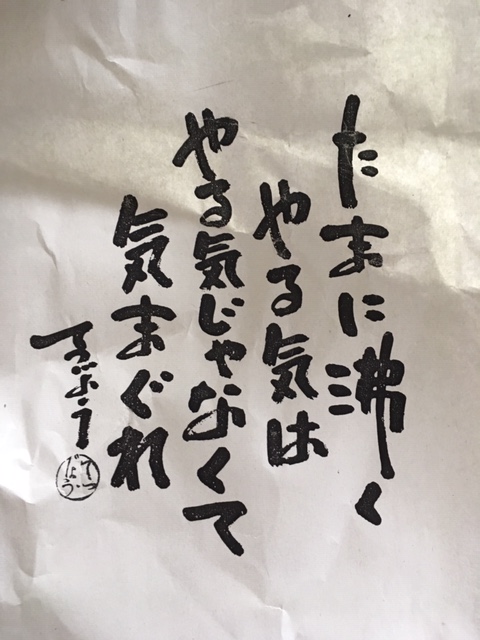 たまに沸く
やる気は
やる気じゃなくて
気まぐれ
てつじょう